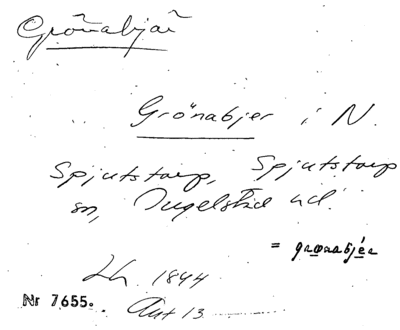 Grönabjär
Grönabjer i N.
Spjutstorp, Spjutstorp
sn, Ingelstad hd.
= grønabjér
Lh 1844
Nr 7655.
Akt 13